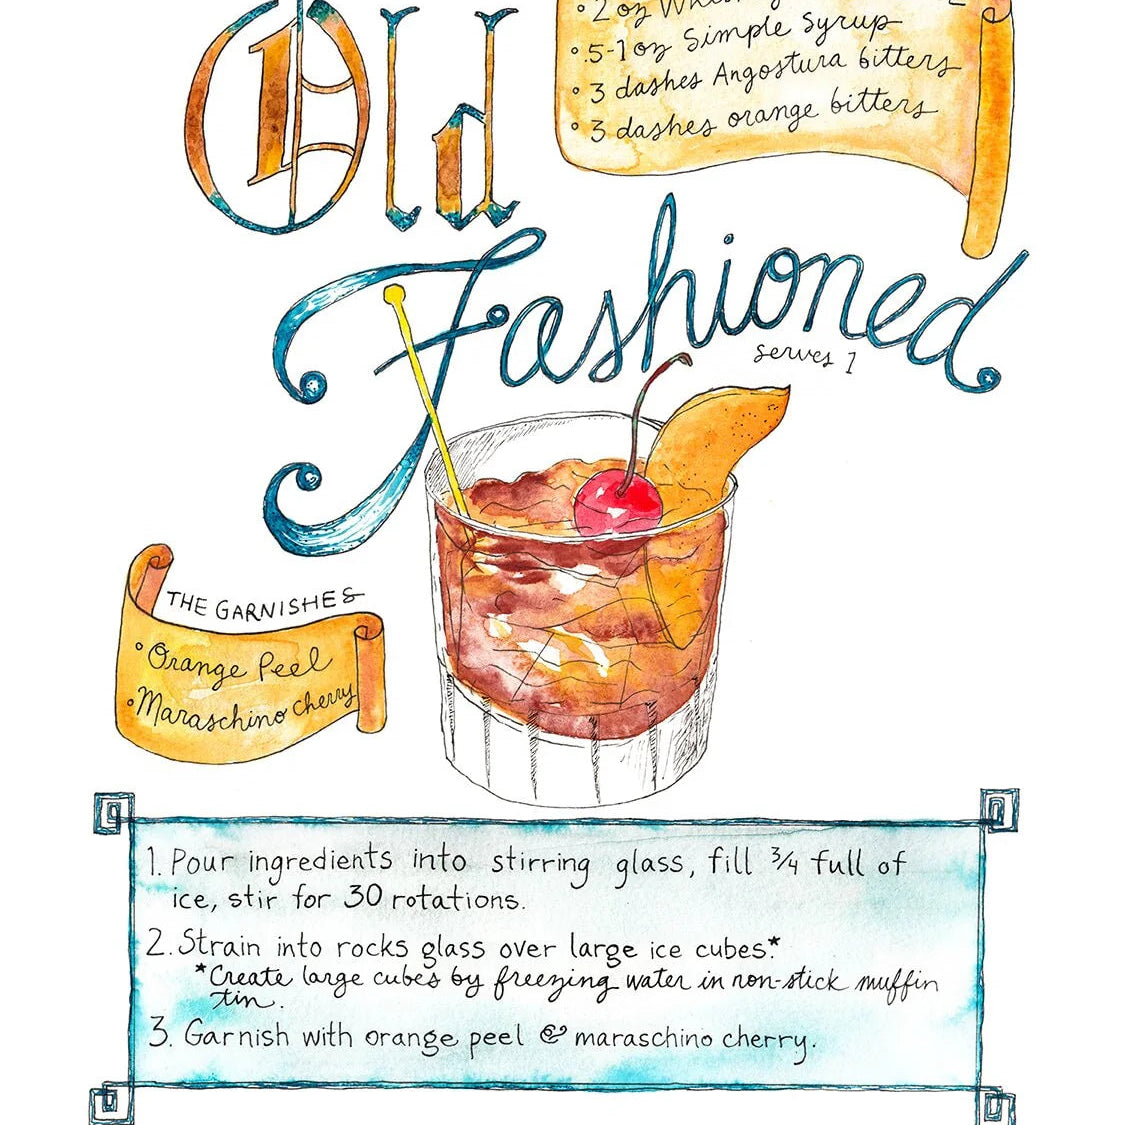 Old
Fashioned
serves 1
• 2 oz
• .5-1 oz Simple Syrup
• 3 dashes Angostura bitters
• 3 dashes orange bitters
THE GARNISHES
• Orange Peel
• Maraschino cherry
1. Pour ingredients into stirring glass, fill 3/4 full of
ice, stir for 30 rotations.
2. Strain into rocks glass over large ice cubes.*
*Create large cubes by freezing water in non-stick muffin
tin.
3. Garnish with orange peel & maraschino cherry.